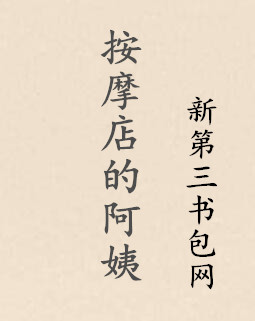 按摩店的阿姨
新第三书包网